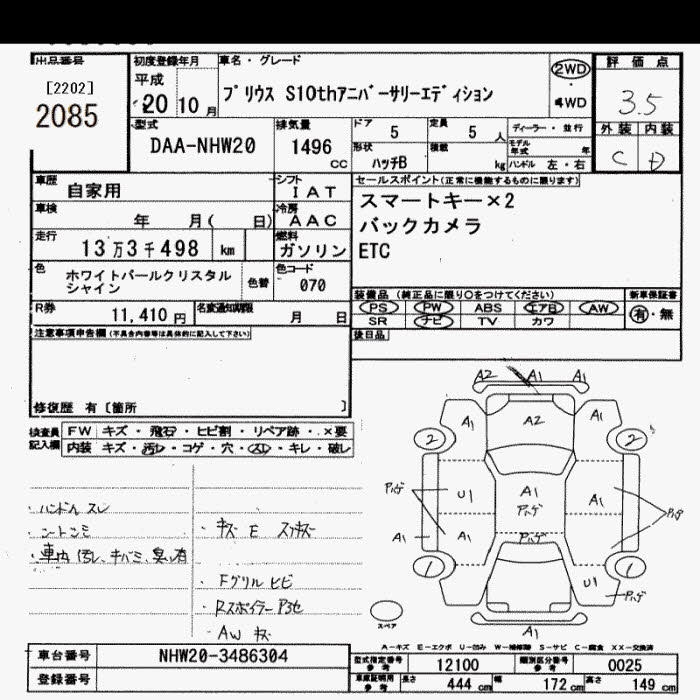 出品番号
[2202]
2085
初度登録年月
平成
20年 10月
車名・グレード
プリウス S10thアニバーサリーエディション
2WD
・
4WD
評 価 点
3.5
外装 内装
C D
型式
DAA-NHW20
排気量
1496
cc
ドア
5
定員
5 人
形状
ハッチB
積載
kg
ディーラー・並行
モデル年式 年
ハンドル 左・右
車歴
自家用
シフト
IAT
車検
年 月( 日)
冷房
AAC
走行
13万3千498 km
燃料
ガソリン
色
ホワイトパールクリスタル
シャイン
色替
色コード
070
R券
11,410 円
名変通知期限
月 日
セールスポイント(正常に機能するものに限ります)
スマートキー×2
バックカメラ
ETC
装備品 (純正品に限り○をつけてください)
PS PW ABS エアB AW
SR ナビ TV カワ
新車保証書
有・無
後日品
注意事項申告欄 (不具合内容等は具体的に記入して下さい)
修復歴 有〔箇所 〕
検査員
記入欄
FW キズ・飛石・ヒビ割・リペア跡・×要
内装 キズ・汚レ・コゲ・穴・スレ・キレ・破レ
・ハンドル スレ
・シートシミ
・車内 汚レ、キバミ、臭い有
・キズ E スリキズ
・Fグリル ヒビ
・Rスポイラー アSセ
・AW キズ
A2 A1 A1
A1 A2 A1
2 2
U1 A1 A1
アハゲ
A1 A1
1 1
U1
A1
スペア
A-キズ E-エクボ U-凹み W-補修跡 S-サビ C-腐食 XX-交換済
車台番号
NHW20-3486304
登録番号
型式指定番号
参考
12100
類別区分番号
参考
0025
車庫証明用
参考
長さ 444 cm
幅 172 cm
高さ 149 cm